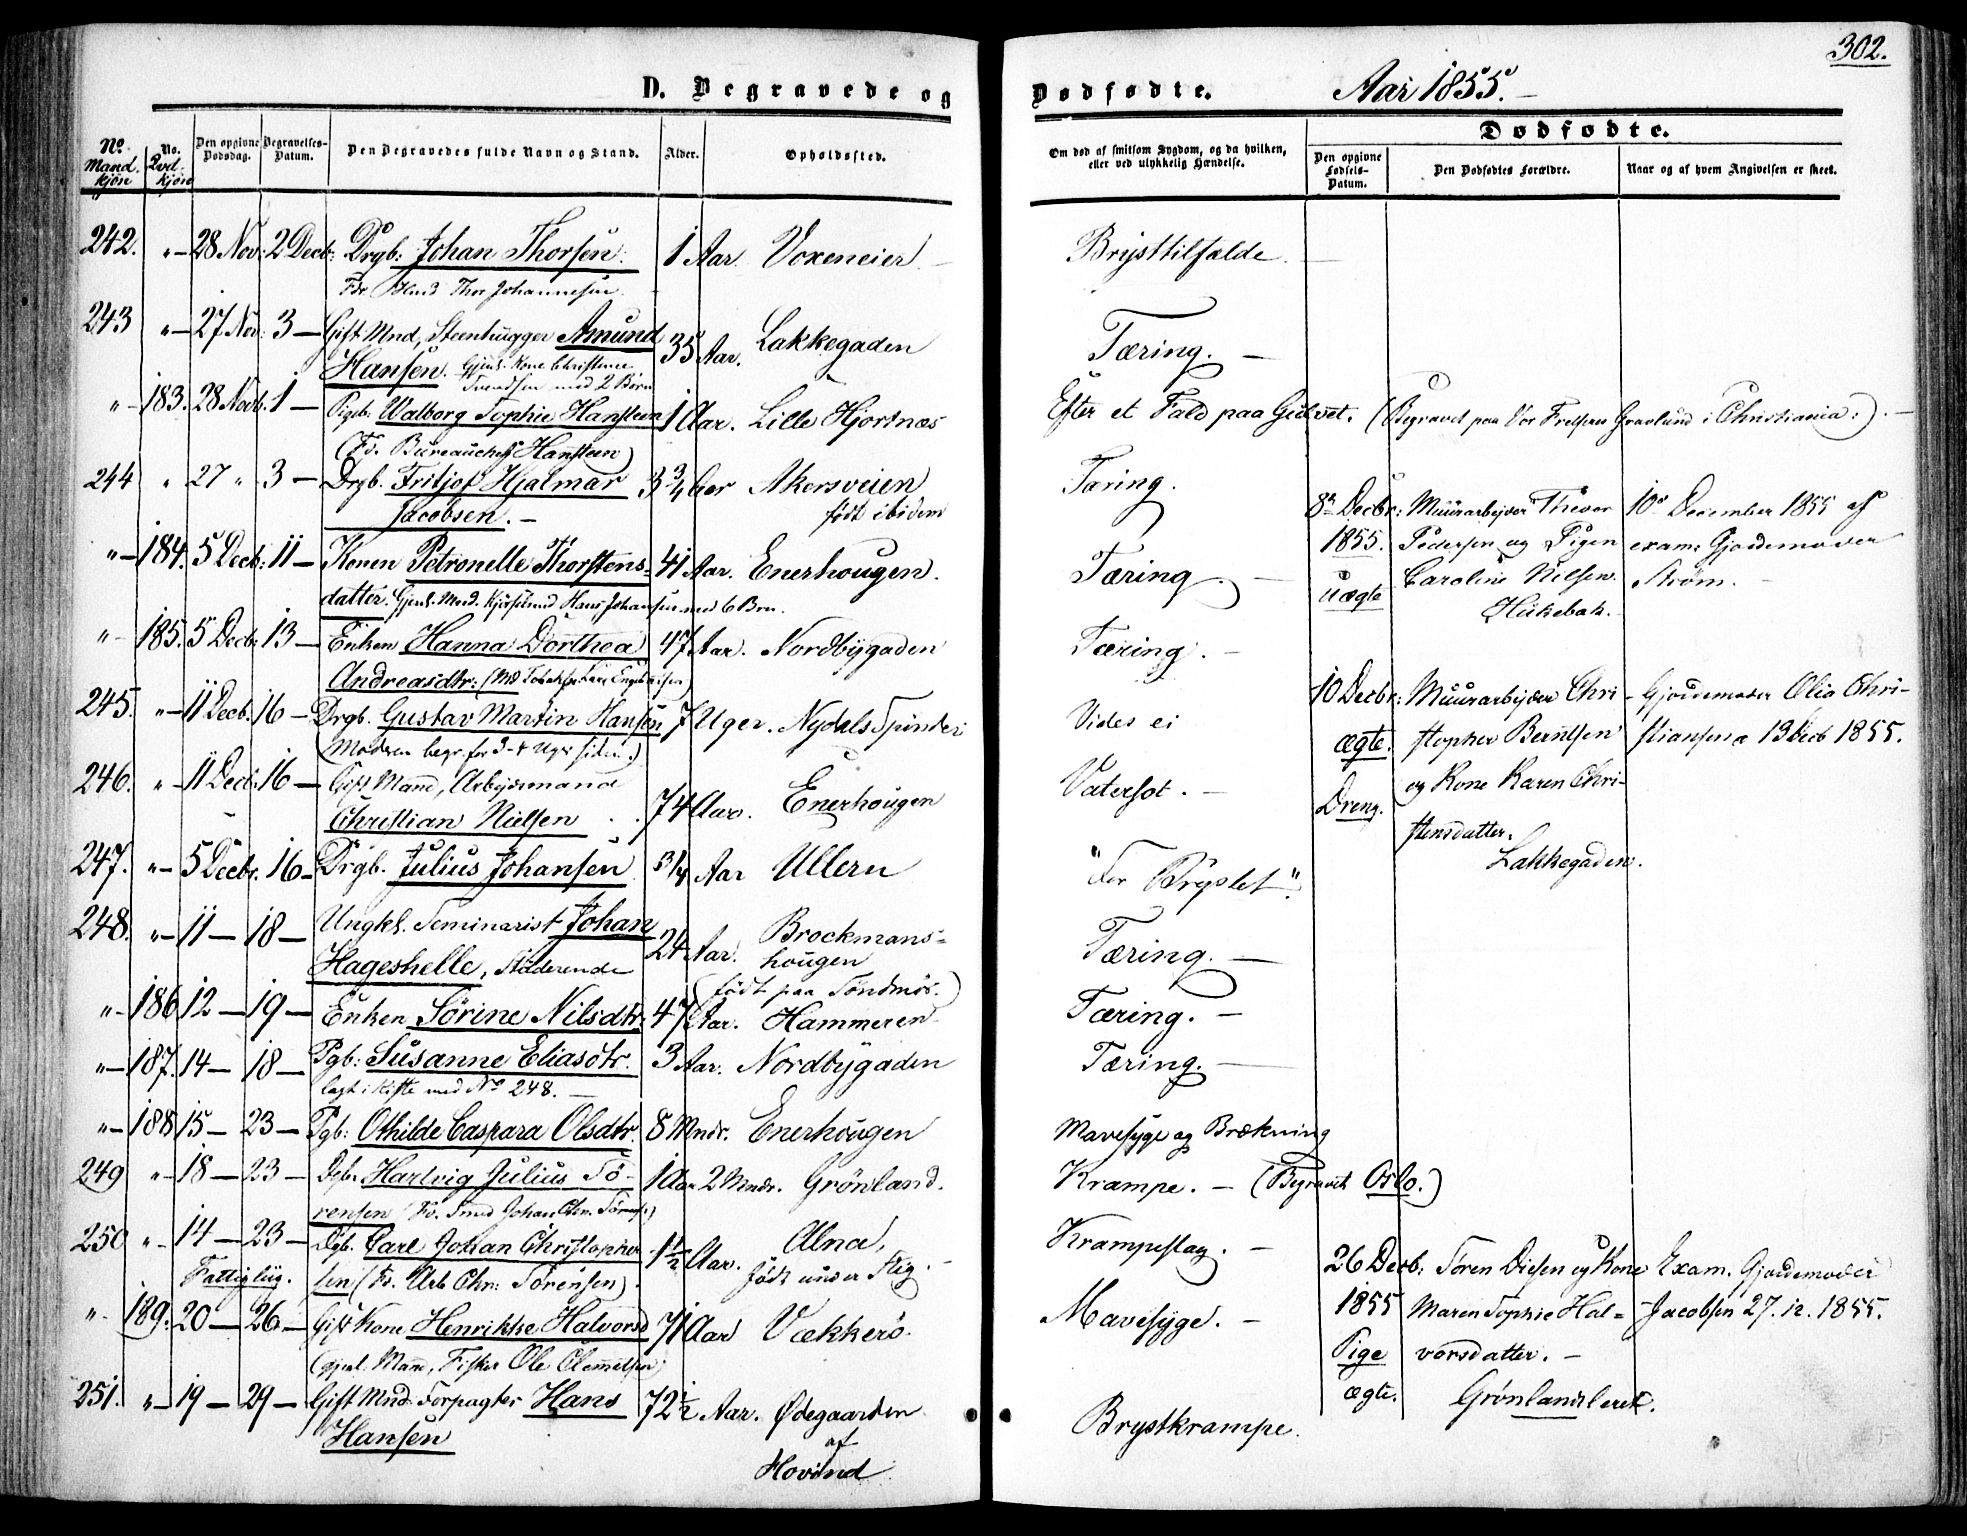 302.
D. Begravede og Dødfødte. Aar 1855.
No. Mand. kjøn
No. Qvd. kjøn
Den opgivne Dødsdag.
Begravelses-Datum.
Den Begravedes fulde Navn og Stand.
Alder.
Opholdssted.
Om død af smitsom Sygdom, og da hvilken, eller ved ulykkelig Hændelse.
Dødfødte.
Den opgivne Fødsels-Datum.
Den Dødfødtes Forældre.
Naar og af hvem Angivelsen er skeet.
242. " 28 Nov: 2 Decb: Drgb: Johan Thorsen. 1 Aar. Voxeneier. Brysttilfælde.
Fdr Thor Johannesen.
243 " 27 Nov: 3 Gift Mnd, Steenhugger Amund 35 Aar. Lakkegaden Tæring.
Hansen. Gjenl. Kone Christence
med 2 Børn
" 183. 28 Novb. 1 Pigeb: Walborg Sophie Hansteen 1 Aar. Lille Hjortnæs Efter et Fald paa Gulvet. (Begravet paa Vor Frelsers Gravlund i Christiania:)
(Fd. Bureauchef Hansteen)
244 " 27 " 3 Drgb. Fritjof Hjalmar 3 3/4 Aar Akersveien Tæring.
Jacobsen. født ibidem
" 184. 5 Decb: 11 Konen Petronelle Thorstens- 41 Aar. Enerhougen. Tæring.
datter. Gjenl. Mnd. Hans Johansen med 6 Brn.
" 185. 5 Decb: 13 Enken Hanna Dorthea 47 Aar. Nordbygaden Tæring.
Andreasdtr:
245. " 11 Decb. 16 Drgb. Gustav Martin Hansen 7 Uger. Nydals Spinderi Vides ei
(Modren begr. for 3-4 Uger siden.)
246. " 11 Decb. 16 Gift Mand, Arbeidsmand 74 Aar. Enerhougen Vatersot.
Christian Nielsen
247. " 5 Decbr. 16 Drgb. Julius Johansen 3/4 Aar Ullern "For Brystet".
248. " 11 18 Ungkl. Seminarist Johan 24 Aar. Brockmans- Tæring.
Hageshelle, Studerende hougen
(født paa Søndmør.)
" 186 12 19 Enken Sørine Nilsdtr. 47 Aar. Hammeren Tæring.
" 187. 14 18 Pgb: Susanne Eliasdtr. 3 Aar. Nordbygaden Tæring.
lagt i Kiste med No 248.
" 188 15 23 Pgb: Othilde Caspara Olsdtr. 8 Mndr. Enerhougen Mavesyge og Brækning
249 " 18 23 Dgb. Hartvig Julius Sø- 1 Aar 2 Mndr. Grønland. Krampe. (Begravet Oslo.)
rensen (Fd. Smed Johan Chrn. Sørensen)
250 " 14 23 Dgb. Carl Johan Christopher- 1 1/2 Aar. Alna, Krampeslag.
Fattiglig. sen (Fd. Arb. Chr: Sørensen). født under Flyg.
" 189. 20 26 Gift Kone Henrikke Halvorsd 71 Aar Vækkerø. Mavesyge.
(gjenl. Mand, Fisker Ole Clemetsen)
251. " 19 29 Gift Mnd. Forpagter Hans 72 1/2 Aar. Ødegaarden Brystkrampe.
Hansen af
Hovind
8de Decbr: Muurarbejder Thevor 10de December 1855 af
1855. Pedersen og Pigen exam: Gjordemoder
uægte Caroline Nilsen. Strøm.
Hukebak.
10 Decbr: Muurarbejder Chri- Gjordemoder Olia Chri-
ægte. stopher Berntsen stiansen 13 Decb 1855.
Dreng. og Kone Karen Chri-
stensdatter.
Lakkegaden.
26 Decb: Søren Diesen og Kone Exam. Gjordemoder
1855 Maren Sophie Hal- Jacobsen 27.12.1855.
Pige vorsdatter.
ægte. Grønlandsleret.